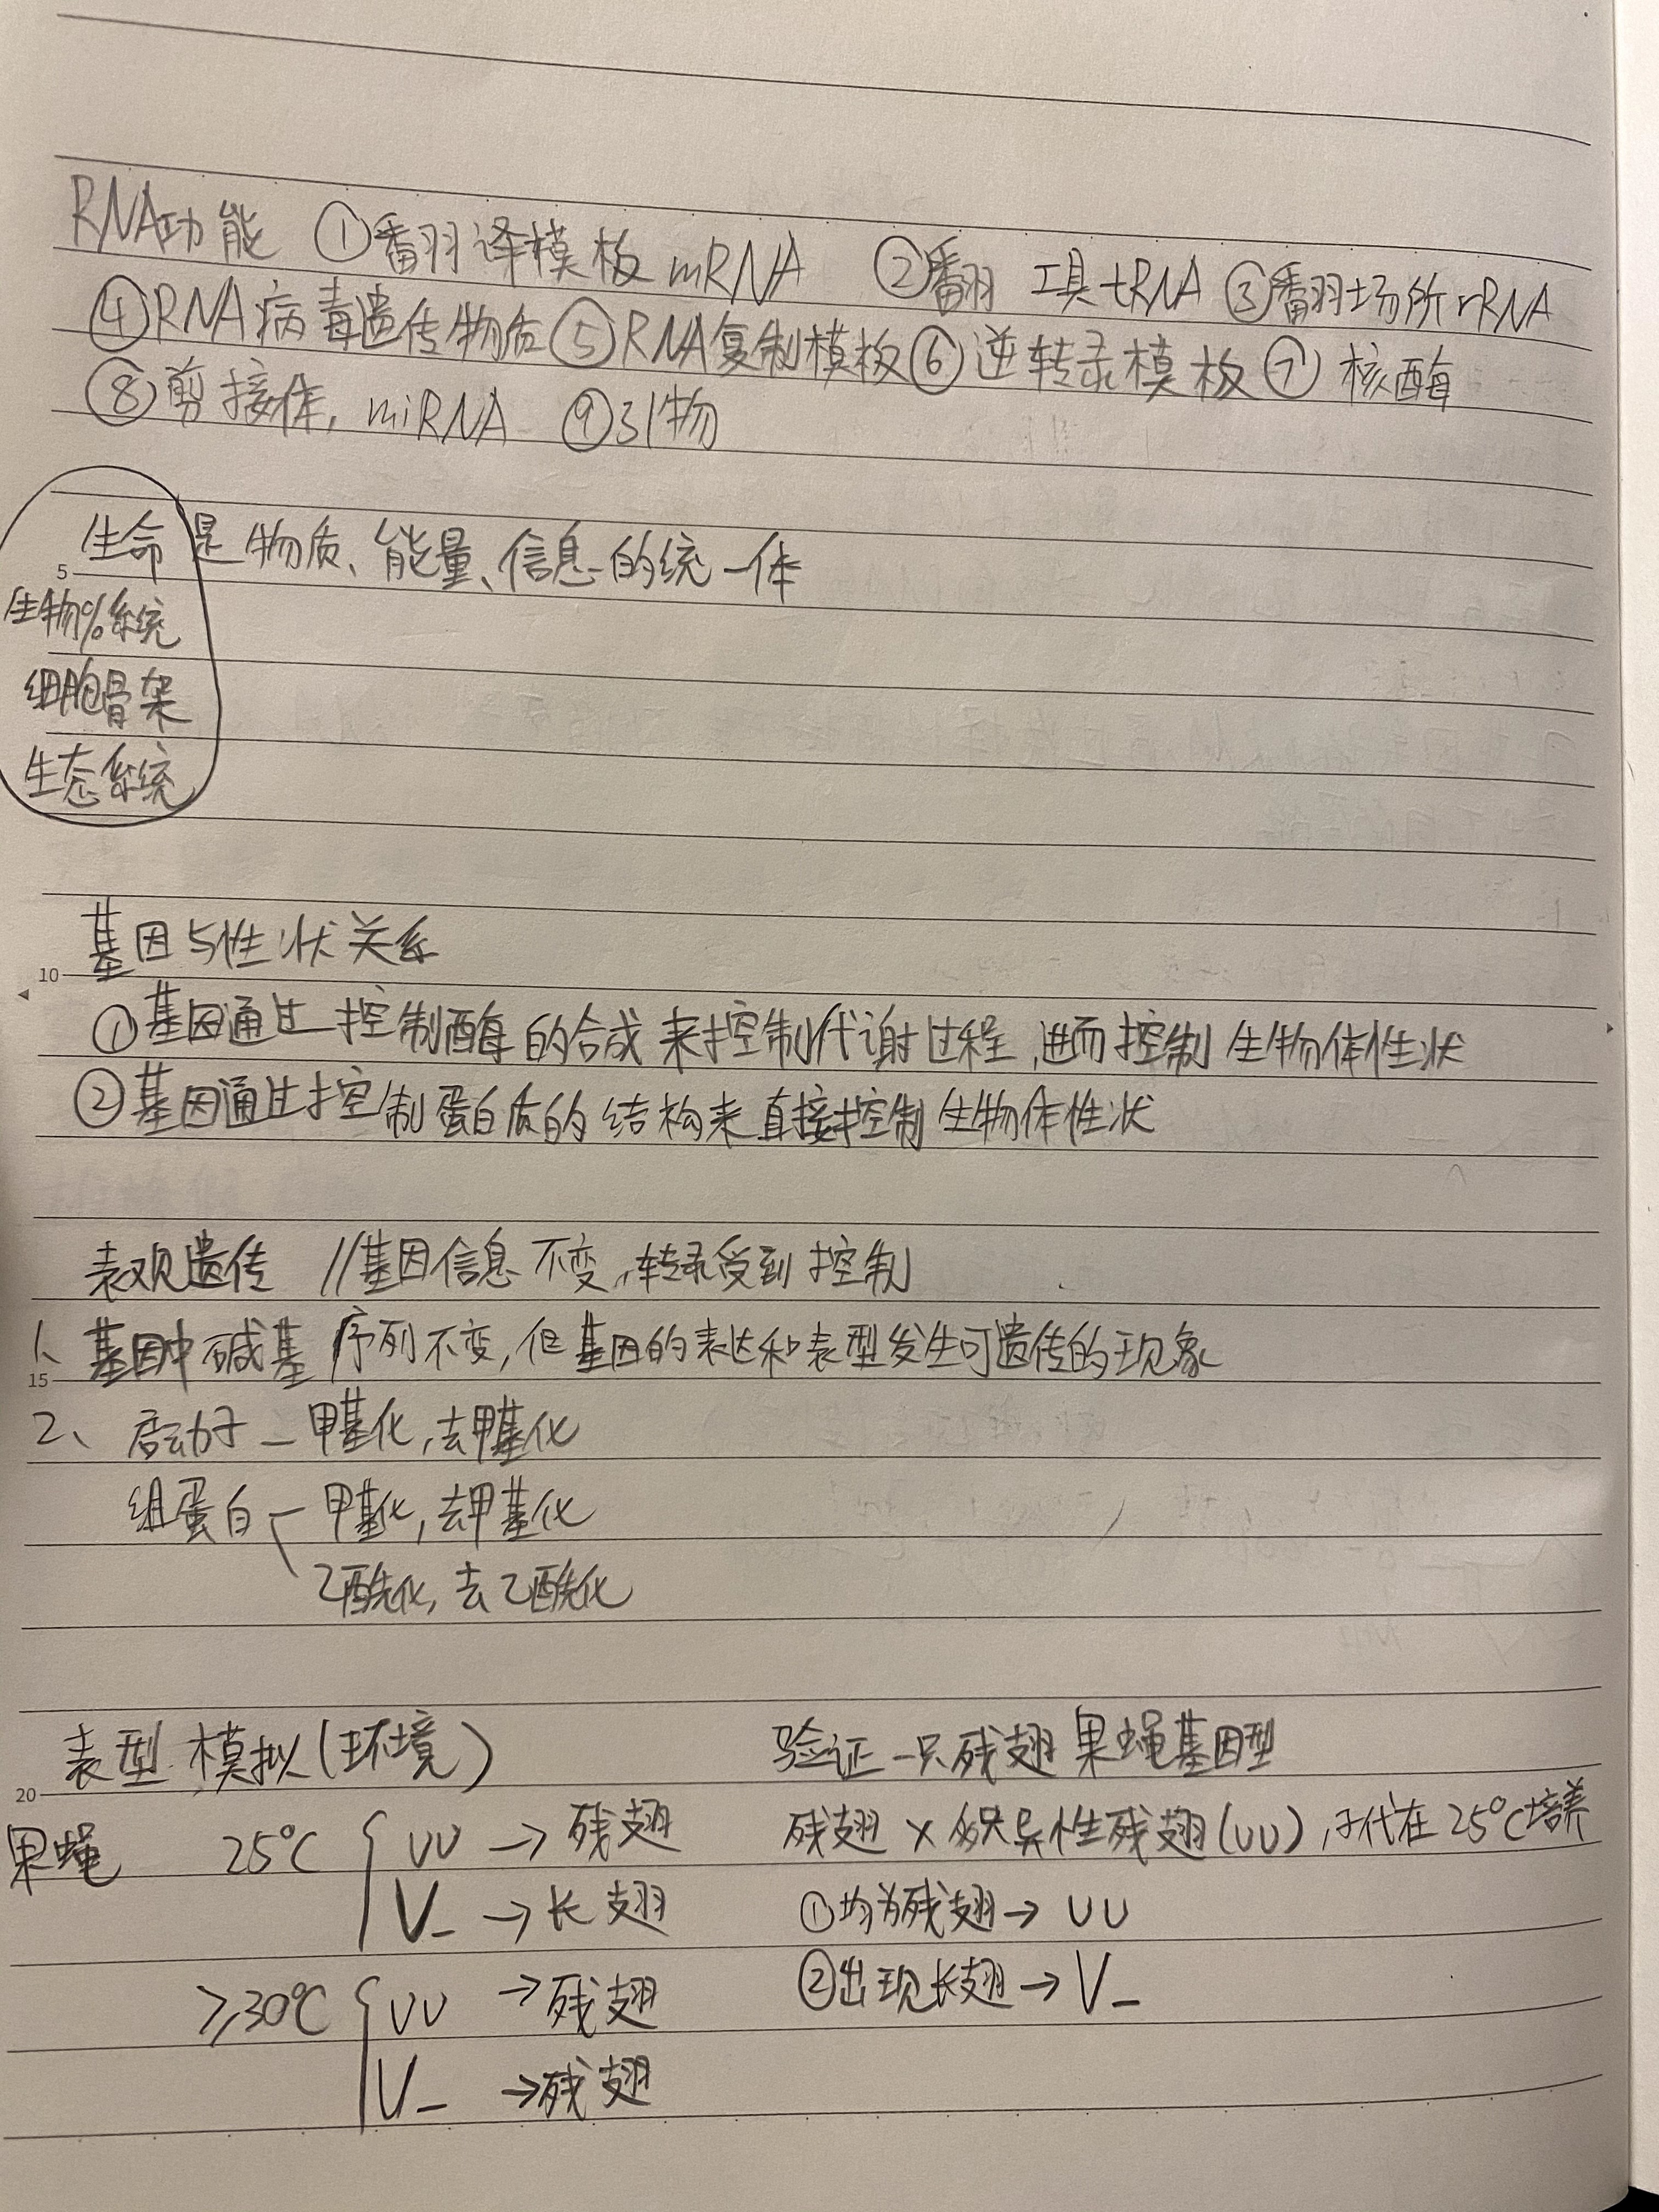 RNA功能 ①翻译模板mRNA ②翻 工具tRNA ③翻译场所rRNA
④RNA病毒遗传物质⑤RNA复制模板⑥逆转录模板⑦核酶
⑧剪接体, miRNA ⑨引物
5
生命是物质、能量、信息的统一体
生物%系统
细胞骨架
生态系统
10
基因与性状关系
①基因通过一控制酶的合成来控制代谢过程,进而控制生物体性状
②基因通过控制蛋白质的结构来直接控制生物体性状
表观遗传 //基因信息不变,转录受到控制
15
1、基因中碱基序列不变,但基因的表达和表型发生可遗传的现象
2、启动子—甲基化,去甲基化
组蛋白—甲基化,去甲基化
乙酰化,去乙酰化
20
表型模拟(环境) 验证一只残翅果蝇基因型
果蝇 25℃ vv → 残翅 残翅 × 异性残翅(vv),子代在25℃培养
V_ → 长翅 ①均为残翅→vv
≥30℃ vv → 残翅 ②出现长翅→V_
V_ → 残翅